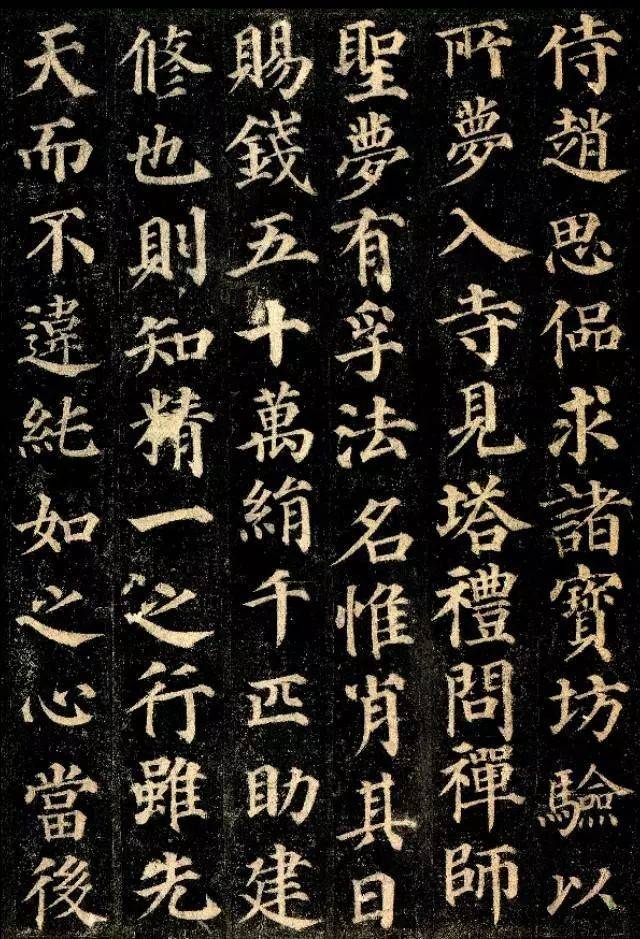 侍趙思侃求諸寶坊驗以
所夢入寺見塔禮問禪師
聖夢有孚法名惟肖其日
賜錢五十萬絹千匹助建
修也則知精一之行雖先
天而不違純如之心當後